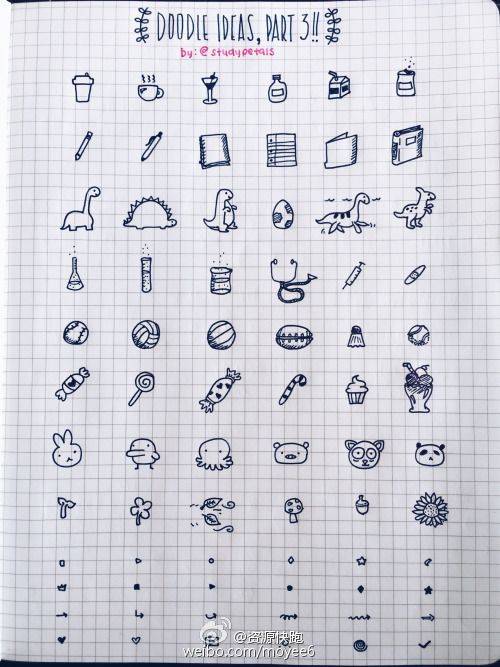 DOODLE IDEAS, PART 3!!
by: @studypetals
@资源快跑
weibo.com/moyee6